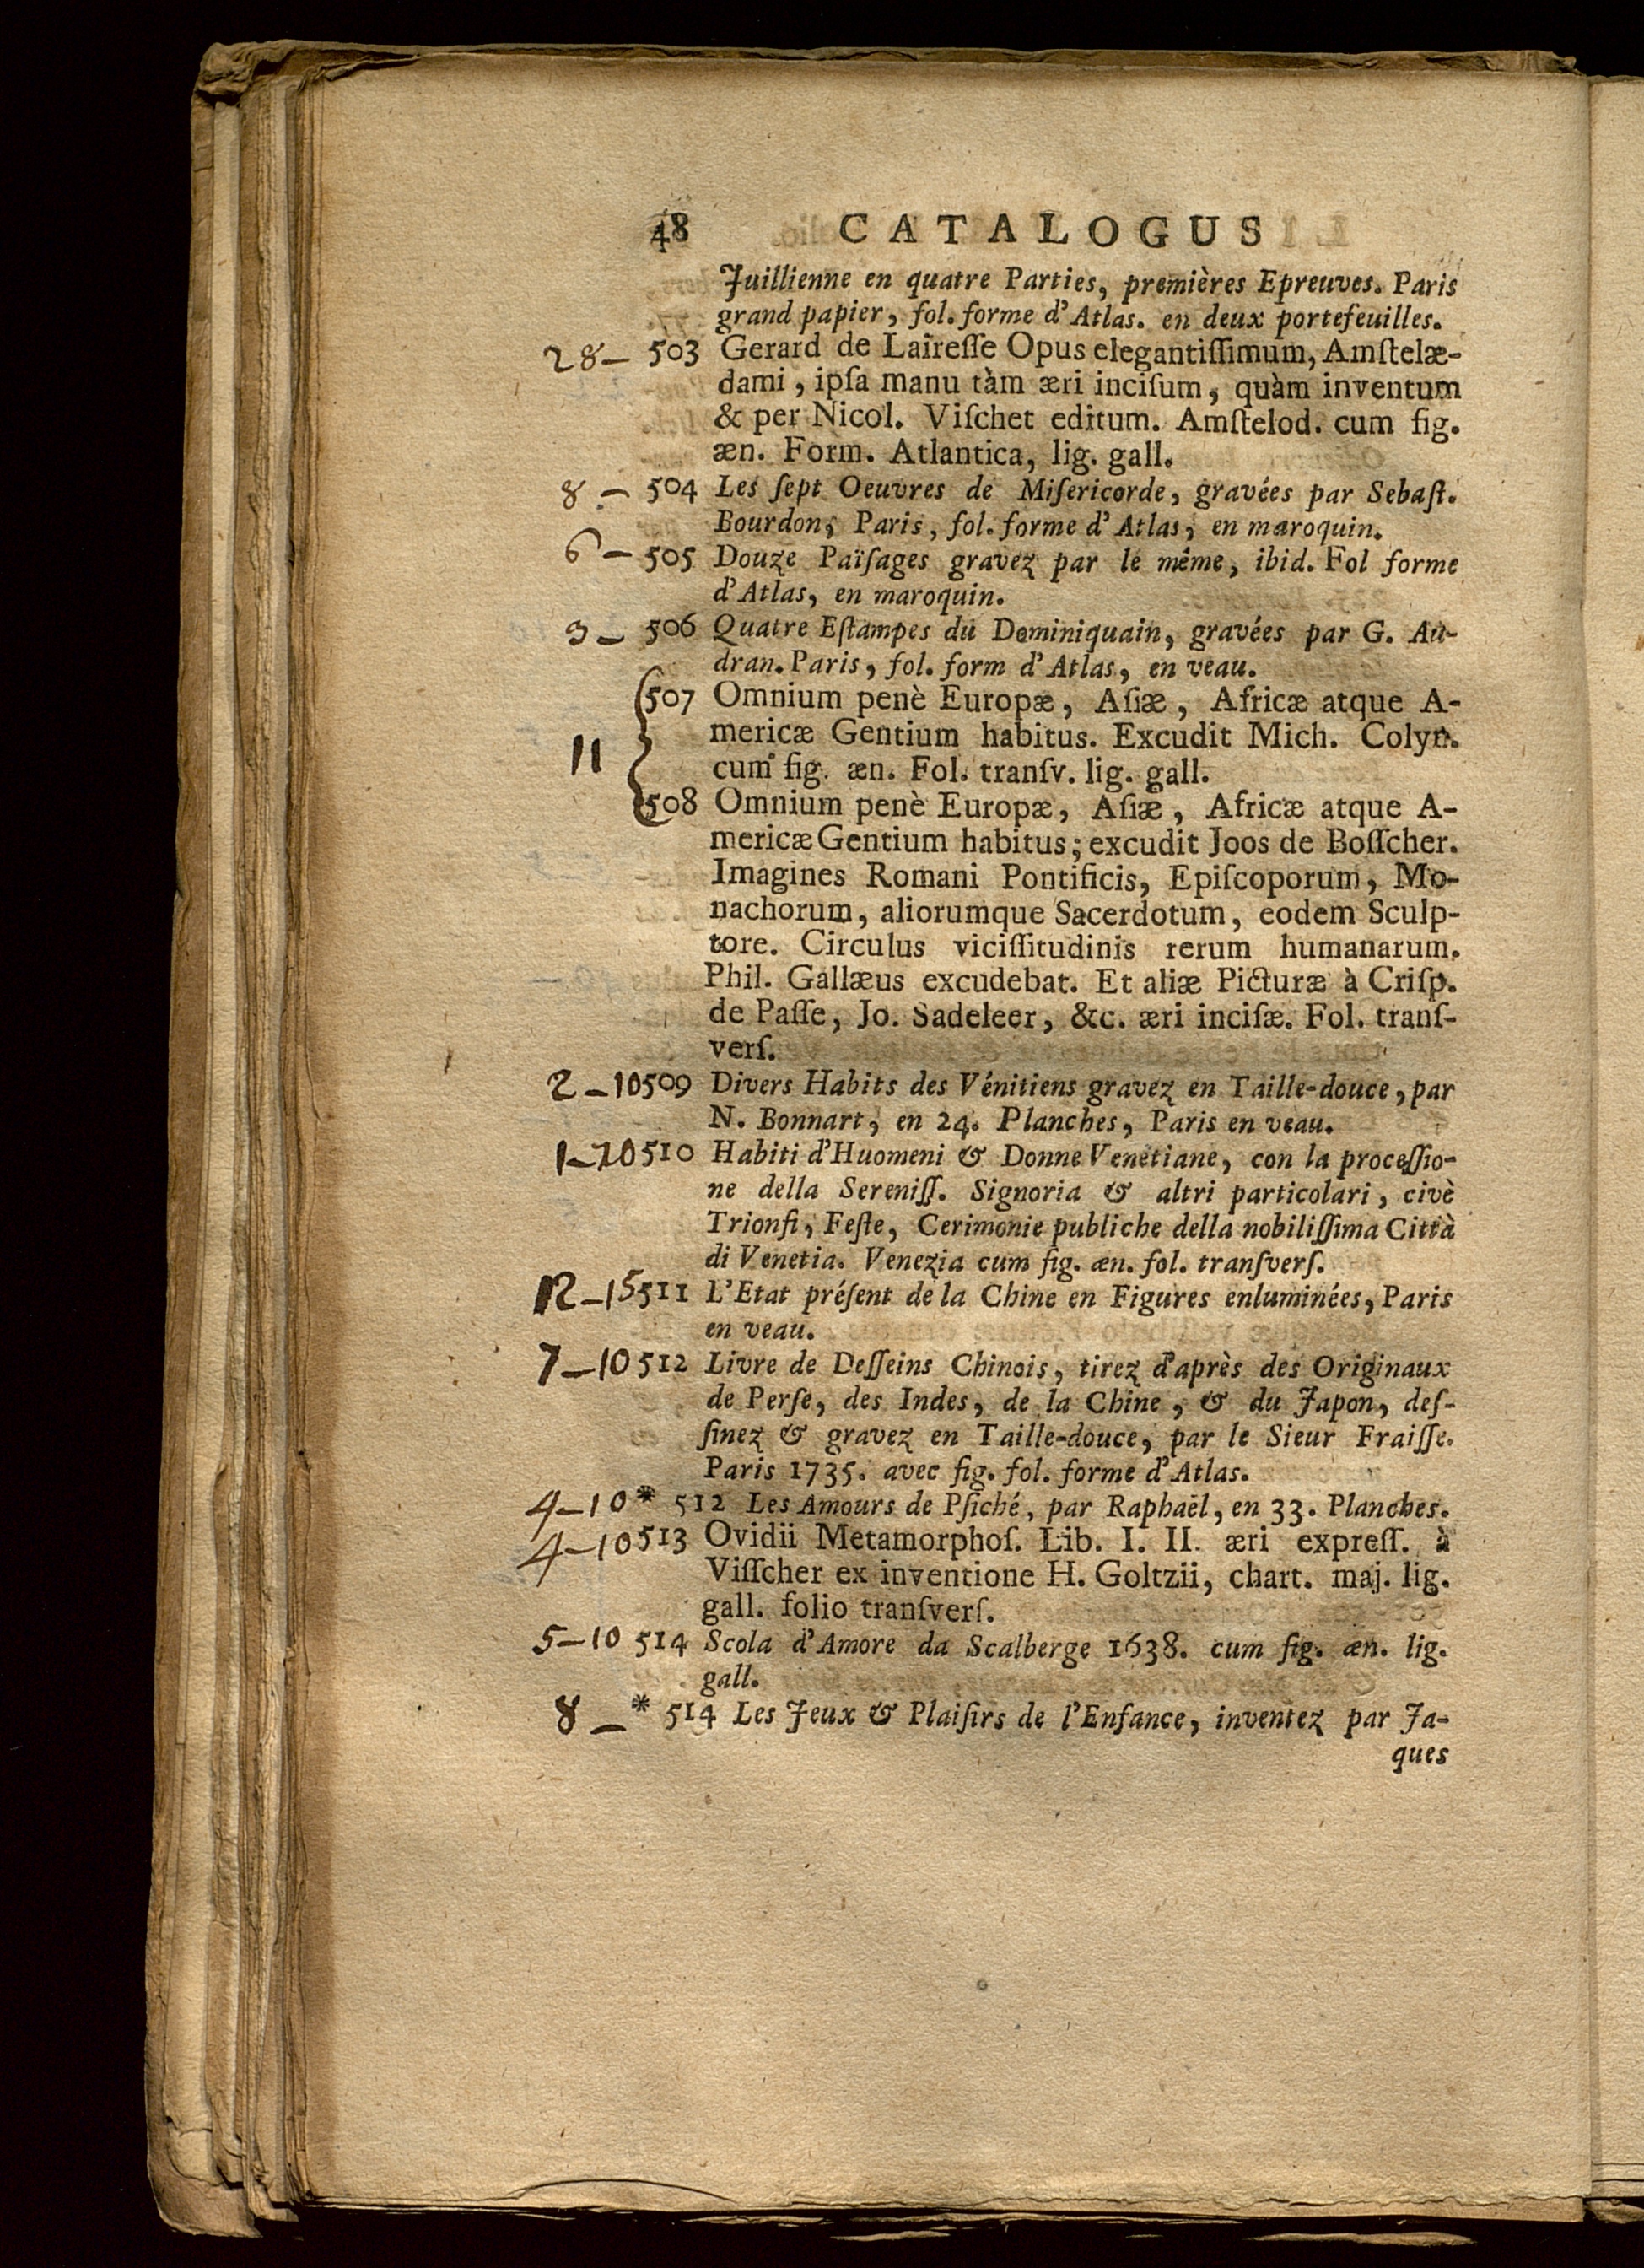 48 CATALOGUS
Juillienne en quatre Parties, premières Epreuves. Paris
grand papier, fol. forme d'Atlas. en deux portefeuilles.
28 – 503 Gerard de Laireſſe Opus elegantiſſimum, Amſtelæ-
dami, ipſa manu tàm æri inciſum, quàm inventum
& per Nicol. Viſchet editum. Amſtelod. cum fig.
æn. Form. Atlantica, lig. gall.
8 – 504 Les ſept Oeuvres de Miſericorde, gravées par Sebaſt.
Bourdon, Paris, fol. forme d'Atlas, en maroquin.
6 – 505 Douze Païſages gravez par le même, ibid. Fol forme
d'Atlas, en maroquin.
3 – 506 Quatre Eſtampes du Dominiquain, gravées par G. Au-
dran. Paris, fol. form d'Atlas, en veau.
507 Omnium penè Europæ, Aſiæ, Africæ atque A-
mericæ Gentium habitus. Excudit Mich. Colyn.
11 cum fig. æn. Fol. tranſv. lig. gall.
508 Omnium penè Europæ, Aſiæ, Africæ atque A-
mericæ Gentium habitus; excudit Joos de Boſſcher.
Imagines Romani Pontificis, Epiſcoporum, Mo-
nachorum, aliorumque Sacerdotum, eodem Sculp-
tore. Circulus viciſſitudinis rerum humanarum.
Phil. Gallæus excudebat. Et aliæ Picturæ à Criſp.
de Paſſe, Jo. Sadeleer, &c. æri inciſæ. Fol. tranſ-
verſ.
2 – 10 509 Divers Habits des Vénitiens gravez en Taille-douce, par
N. Bonnart, en 24. Planches, Paris en veau.
1 – 10 510 Habiti d'Huomeni & Donne Venetiane, con la proceſſio-
ne della Sereniſſ. Signoria & altri particolari, civè
Trionfi, Feſte, Cerimonie publiche della nobiliſſima Città
di Venetia. Venezia cum fig. æn. fol. tranſverſ.
12 – 15 511 L'Etat préſent de la Chine en Figures enluminées, Paris
en veau.
7 – 10 512 Livre de Deſſeins Chinois, tirez d'après des Originaux
de Perſe, des Indes, de la Chine, & du Japon, deſ-
ſinez & gravez en Taille-douce, par le Sieur Fraiſſe.
Paris 1735. avec fig. fol. forme d'Atlas.
4 – 10 * 512 Les Amours de Pſiché, par Raphaël, en 33. Planches.
4 – 10 513 Ovidii Metamorphoſ. Lib. I. II. æri expreſſ. à
Viſſcher ex inventione H. Goltzii, chart. maj. lig.
gall. folio tranſverſ.
5 – 10 514 Scola d'Amore da Scalberge 1638. cum fig. æn. lig.
gall.
8 – * 514 Les Jeux & Plaiſirs de l'Enfance, inventez par Ja-
ques